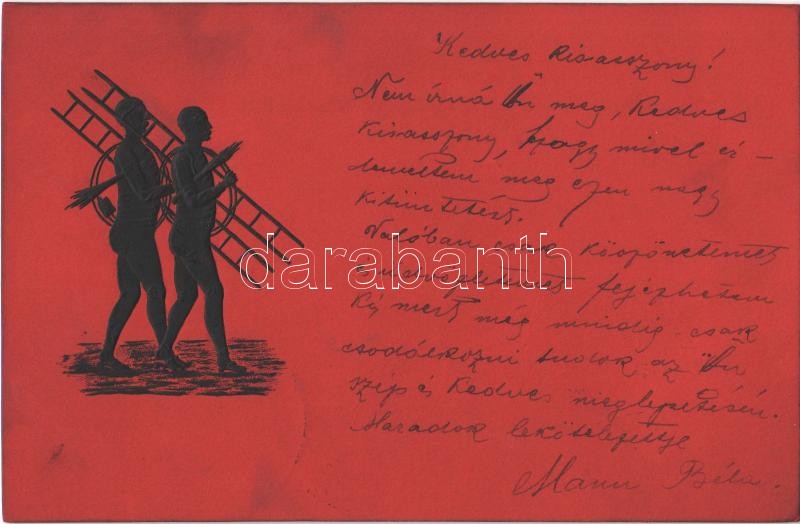 Kedves Kisasszony!
Nem írná Ön meg, Kedves
Kisasszony, hogy mivel ér-
demeltem meg ezen nagy
kitüntetést.
Valóban csak köszönetemet
fejezhetem
ki mert még mindig csak
csodálkozni tudok az Ön
szép és Kedves meglepetésén.
Maradok lekötelezettje
Mann Béla.
darabanth